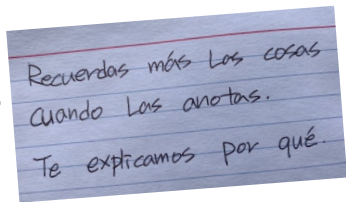 Recuerdas más las cosas
cuando las anotas.
Te explicamos por qué.